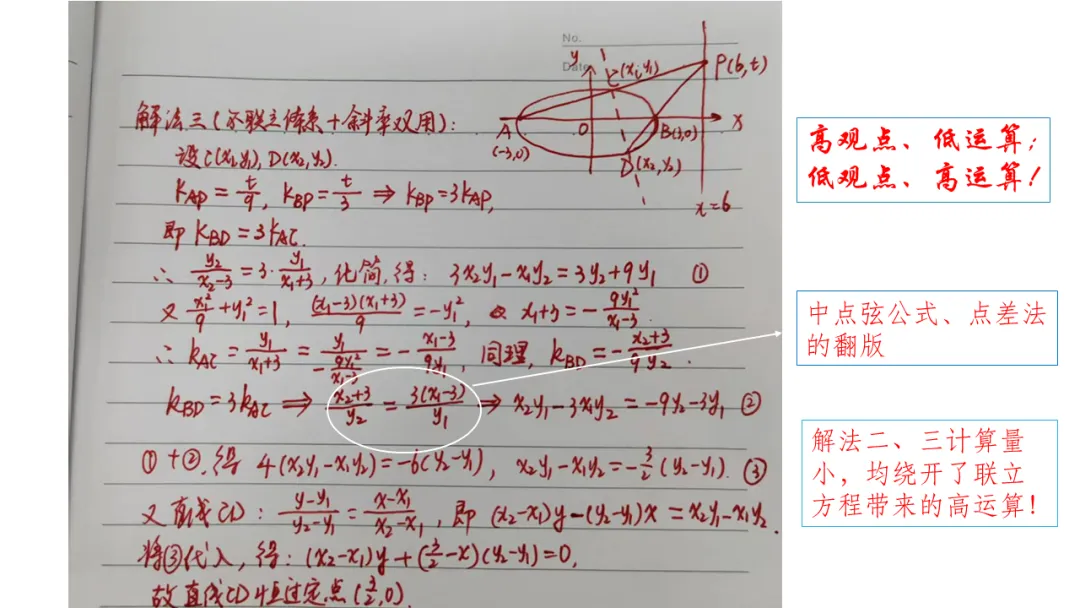 No.
Date
y
C(x₁,y₁)
P(6,t)
A
(-3,0)
O
B(3,0)
x
D(x₂,y₂)
x=6
解法三(不联立体系+斜率双用):
设C(x₁,y₁), D(x₂,y₂).
k_AP = t/9, k_BP = t/3 ⇒ k_BP = 3k_AP,
即 k_BD = 3k_AC.
∴ y₂/(x₂-3) = 3·y₁/(x₁+3), 化简,得: 3x₂y₁-x₁y₂=3y₂+9y₁ ①
又 x₁²/9+y₁²=1, (x₁-3)(x₁+3)/9=-y₁², 即 x₁+3=-9y₁²/(x₁-3)
∴ k_AC = y₁/(x₁+3) = y₁/(-9y₁²/(x₁-3)) = -(x₁-3)/(9y₁), 同理, k_BD=-(x₂+3)/(9y₂).
k_BD=3k_AC ⇒ (x₂+3)/y₂ = 3(x₁-3)/y₁ ⇒ x₂y₁-3x₁y₂=-9y₂-3y₁ ②
①+②,得 4(x₂y₁-x₁y₂)=-6(y₂-y₁), x₂y₁-x₁y₂=-3/2(y₂-y₁). ③
又直线CD: (y-y₁)/(y₂-y₁)=(x-x₁)/(x₂-x₁), 即 (x₂-x₁)y-(y₂-y₁)x=x₂y₁-x₁y₂.
将③代入,得: (x₂-x₁)y+(3/2-x)(y₂-y₁)=0,
故直线CD恒过定点(3/2,0).
高观点、低运算;
低观点、高运算!
中点弦公式、点差法
的翻版
解法二、三计算量
小,均绕开了联立
方程带来的高运算!